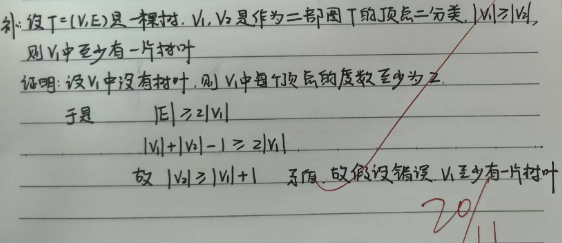 补: 设T=(V,E)是一棵树. V₁, V₂是作为二部图T的顶点二分类, |V₁|≥|V₂|,
则V₁中至少有一片树叶
证明: 设V₁中没有树叶, 则V₁中每个顶点的度数至少为2
于是 |E|≥2|V₁|
|V₁|+|V₂|-1≥2|V₁|
故 |V₂|≥|V₁|+1 矛盾, 故假设错误 V₁至少有一片树叶
20/11